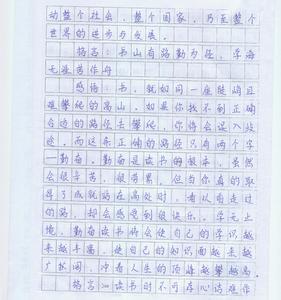 动整个社会，整个国家，乃至整个
世界的进步与发展。
格言：书山有路勤为径，学海
无涯苦作舟
感悟：书，就如同一座陡峭且
难攀爬的高山，如果你找不到正确
合适的路径去攀爬，你将会误入歧
途。而这条正确的路径只有两个字
—勤奋。勤奋是读书的根本，虽然
会很辛苦，很劳累，但当你真的取
得了成就站在高处时，看从有走过
的路，却会感觉到很快乐。学无止
境，勤奋读书将会使自己的学识越
来越丰富，使自己的知识面越来越
广拓阔，冲着人生的顶峰越攀越高。
格言二：读书时不可存心诘难作